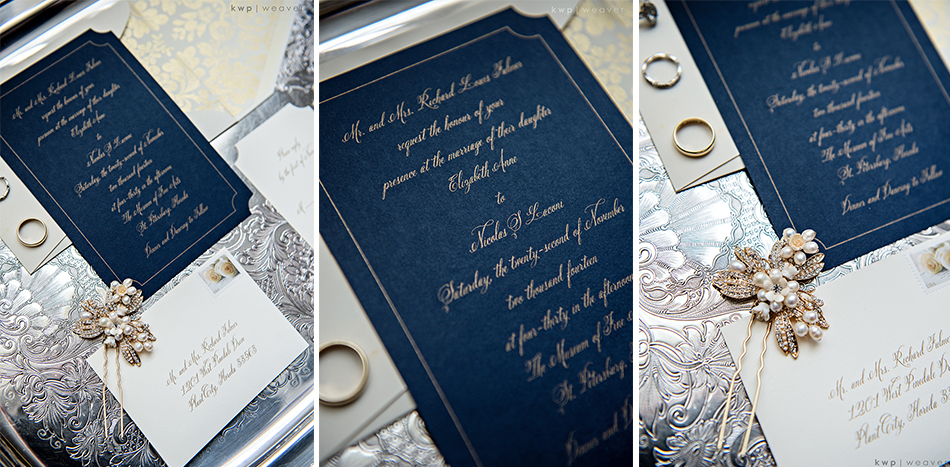 kwp | weaver
Mr. and Mrs. Richard Louis Fulmer
request the honour of your
presence at the marriage of their daughter
Elizabeth Anne
to
Saturday, the twenty-second of November
two thousand fourteen
at four-thirty in the afternoon
The Museum of Fine Arts
St. Petersburg, Florida
Dinner and Dancing to Follow
Mr. and Mrs. Richard Fulmer
Plant City, Florida
kwp | weaver
Mr. and Mrs. Richard Louis Fulmer
request the honour of your
presence at the marriage of their daughter
Elizabeth Anne
to
Nicolas S Laconi
Saturday, the twenty-second of November
two thousand fourteen
at four-thirty in the afternoo
The Museum of Fine
St. Petersburg,
Dinner and
kwp | weaver
presence at the marriage of
Elizabeth Anne
to
Saturday, the twenty-second of November
two thousand fourteen
at four-thirty in the afternoon
The Museum of Fine Arts
St. Petersburg, Florida
Dinner and Dancing to Follow
Mr. and Mrs. Richard Fulmer
1201 West
Plant City, Florida
kwp | weaver